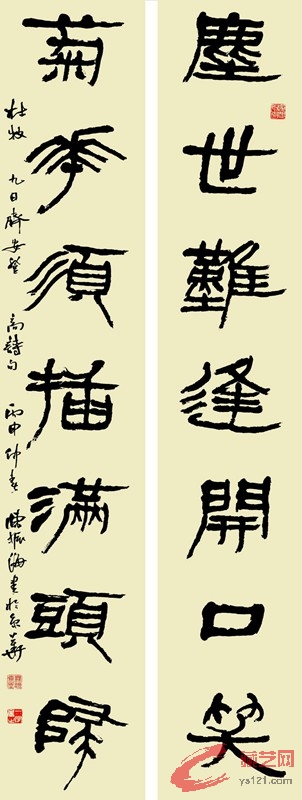 塵世難逢開口笑
菊花須插滿頭歸
杜牧 九日齊安登高詩句 丙申仲春 書於京華
藏艺网
ys121.com